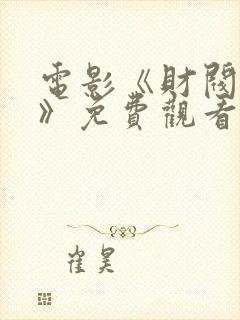 電影《財閥
》免費觀看
崔昊